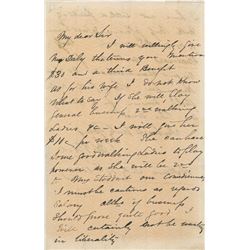 My dear Sir
I will willingly give
Mr Daly the terms you mention
$31 and a third Benefit
as for his wife I do not know
what to say If she will play
general business 2nd walking
Ladies &c — I will give her
pr week She can have
some good walking Ladies to play
however as she will be 2nd
I must be cautious as regards
Salary altho if business
should prove quite good I
will certainly not be wanting
in liberality